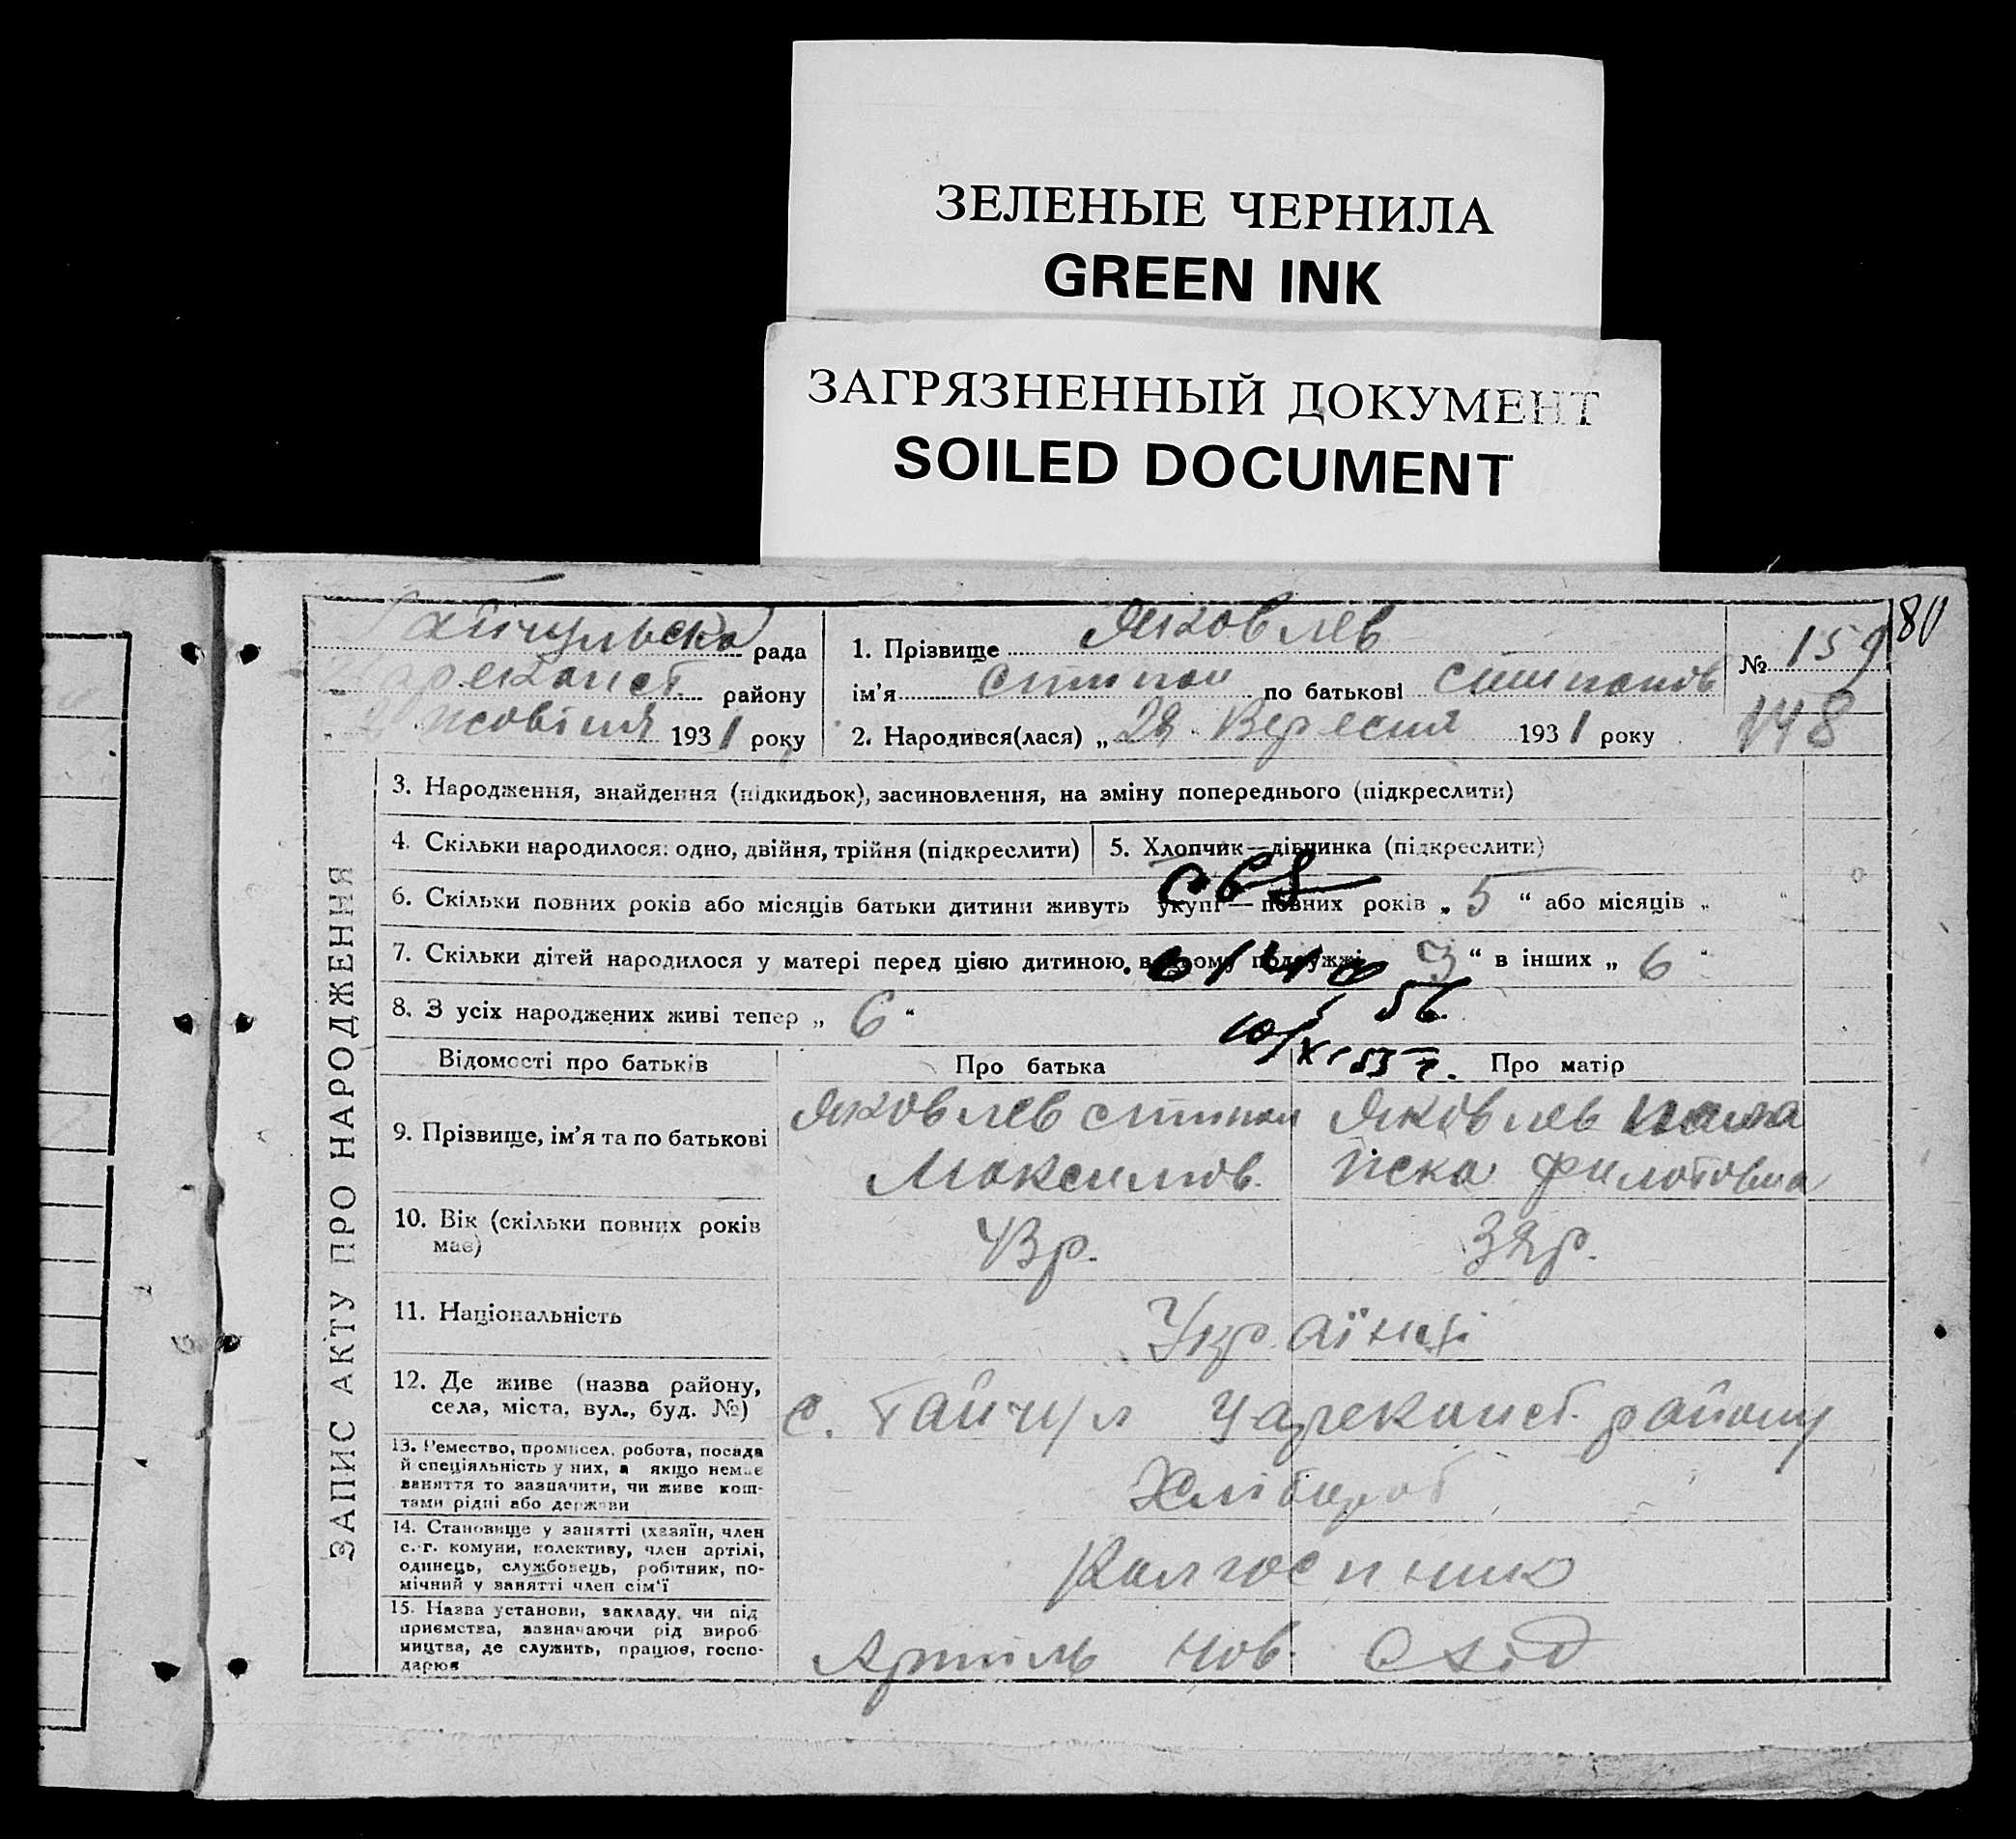 ЗЕЛЕНЫЕ ЧЕРНИЛА
GREEN INK
ЗАГРЯЗНЕННЫЙ ДОКУМЕНТ
SOILED DOCUMENT
80
Гайчульска рада
району
жовтня 1931 року
1. Прізвище Яковлев
ім'я Степан по батькові Степанов
2. Народився(лася) „28 Вересня 1931 року
№ 159
148
ЗАПИС АКТУ ПРО НАРОДЖЕННЯ
3. Народження, знайдення (підкидьок), засиновлення, на зміну попереднього (підкреслити)
4. Скільки народилося: одно, двійня, трійня (підкреслити)
5. Хлопчик—дівчинка (підкреслити)
6. Скільки повних років або місяців батьки дитини живуть укупі— повних років „ 5 “ або місяців „ “
7. Скільки дітей народилося у матері перед цією дитиною, в цьому подружжі 3 “ в інших „ 6 “
8. З усіх народжених живі тепер „ 6 “
56
10/XI 53 г.
Відомості про батьків
Про батька
Про матір
9. Прізвище, ім'я та по батькові
Яковлев Степан
Максимов.
Яковлев Пала
писка Филотовна
10. Вік (скільки повних років
має)
43р.
38р.
11. Національність
Українці
12. Де живе (назва району,
села, міста, вул., буд. №)
с. Гайчул Чареконст. району
13. Ремество, промисел, робота, посада
й спеціяльність у них, а якщо немає
заняття то зазначити, чи живе кош-
тами рідні або держави
Хлібороб
14. Становище у занятті (хазяїн, член
с.-г. комуни, колективу, член артілі,
одинець, службовець, робітник, по-
мічний у занятті член сім'ї
Колгоспник
15. Назва установи, закладу, чи під
приємства, зазначаючи рід вироб
ництва, де служить, працює, госпо-
дарює
Артиль Нов. Схід